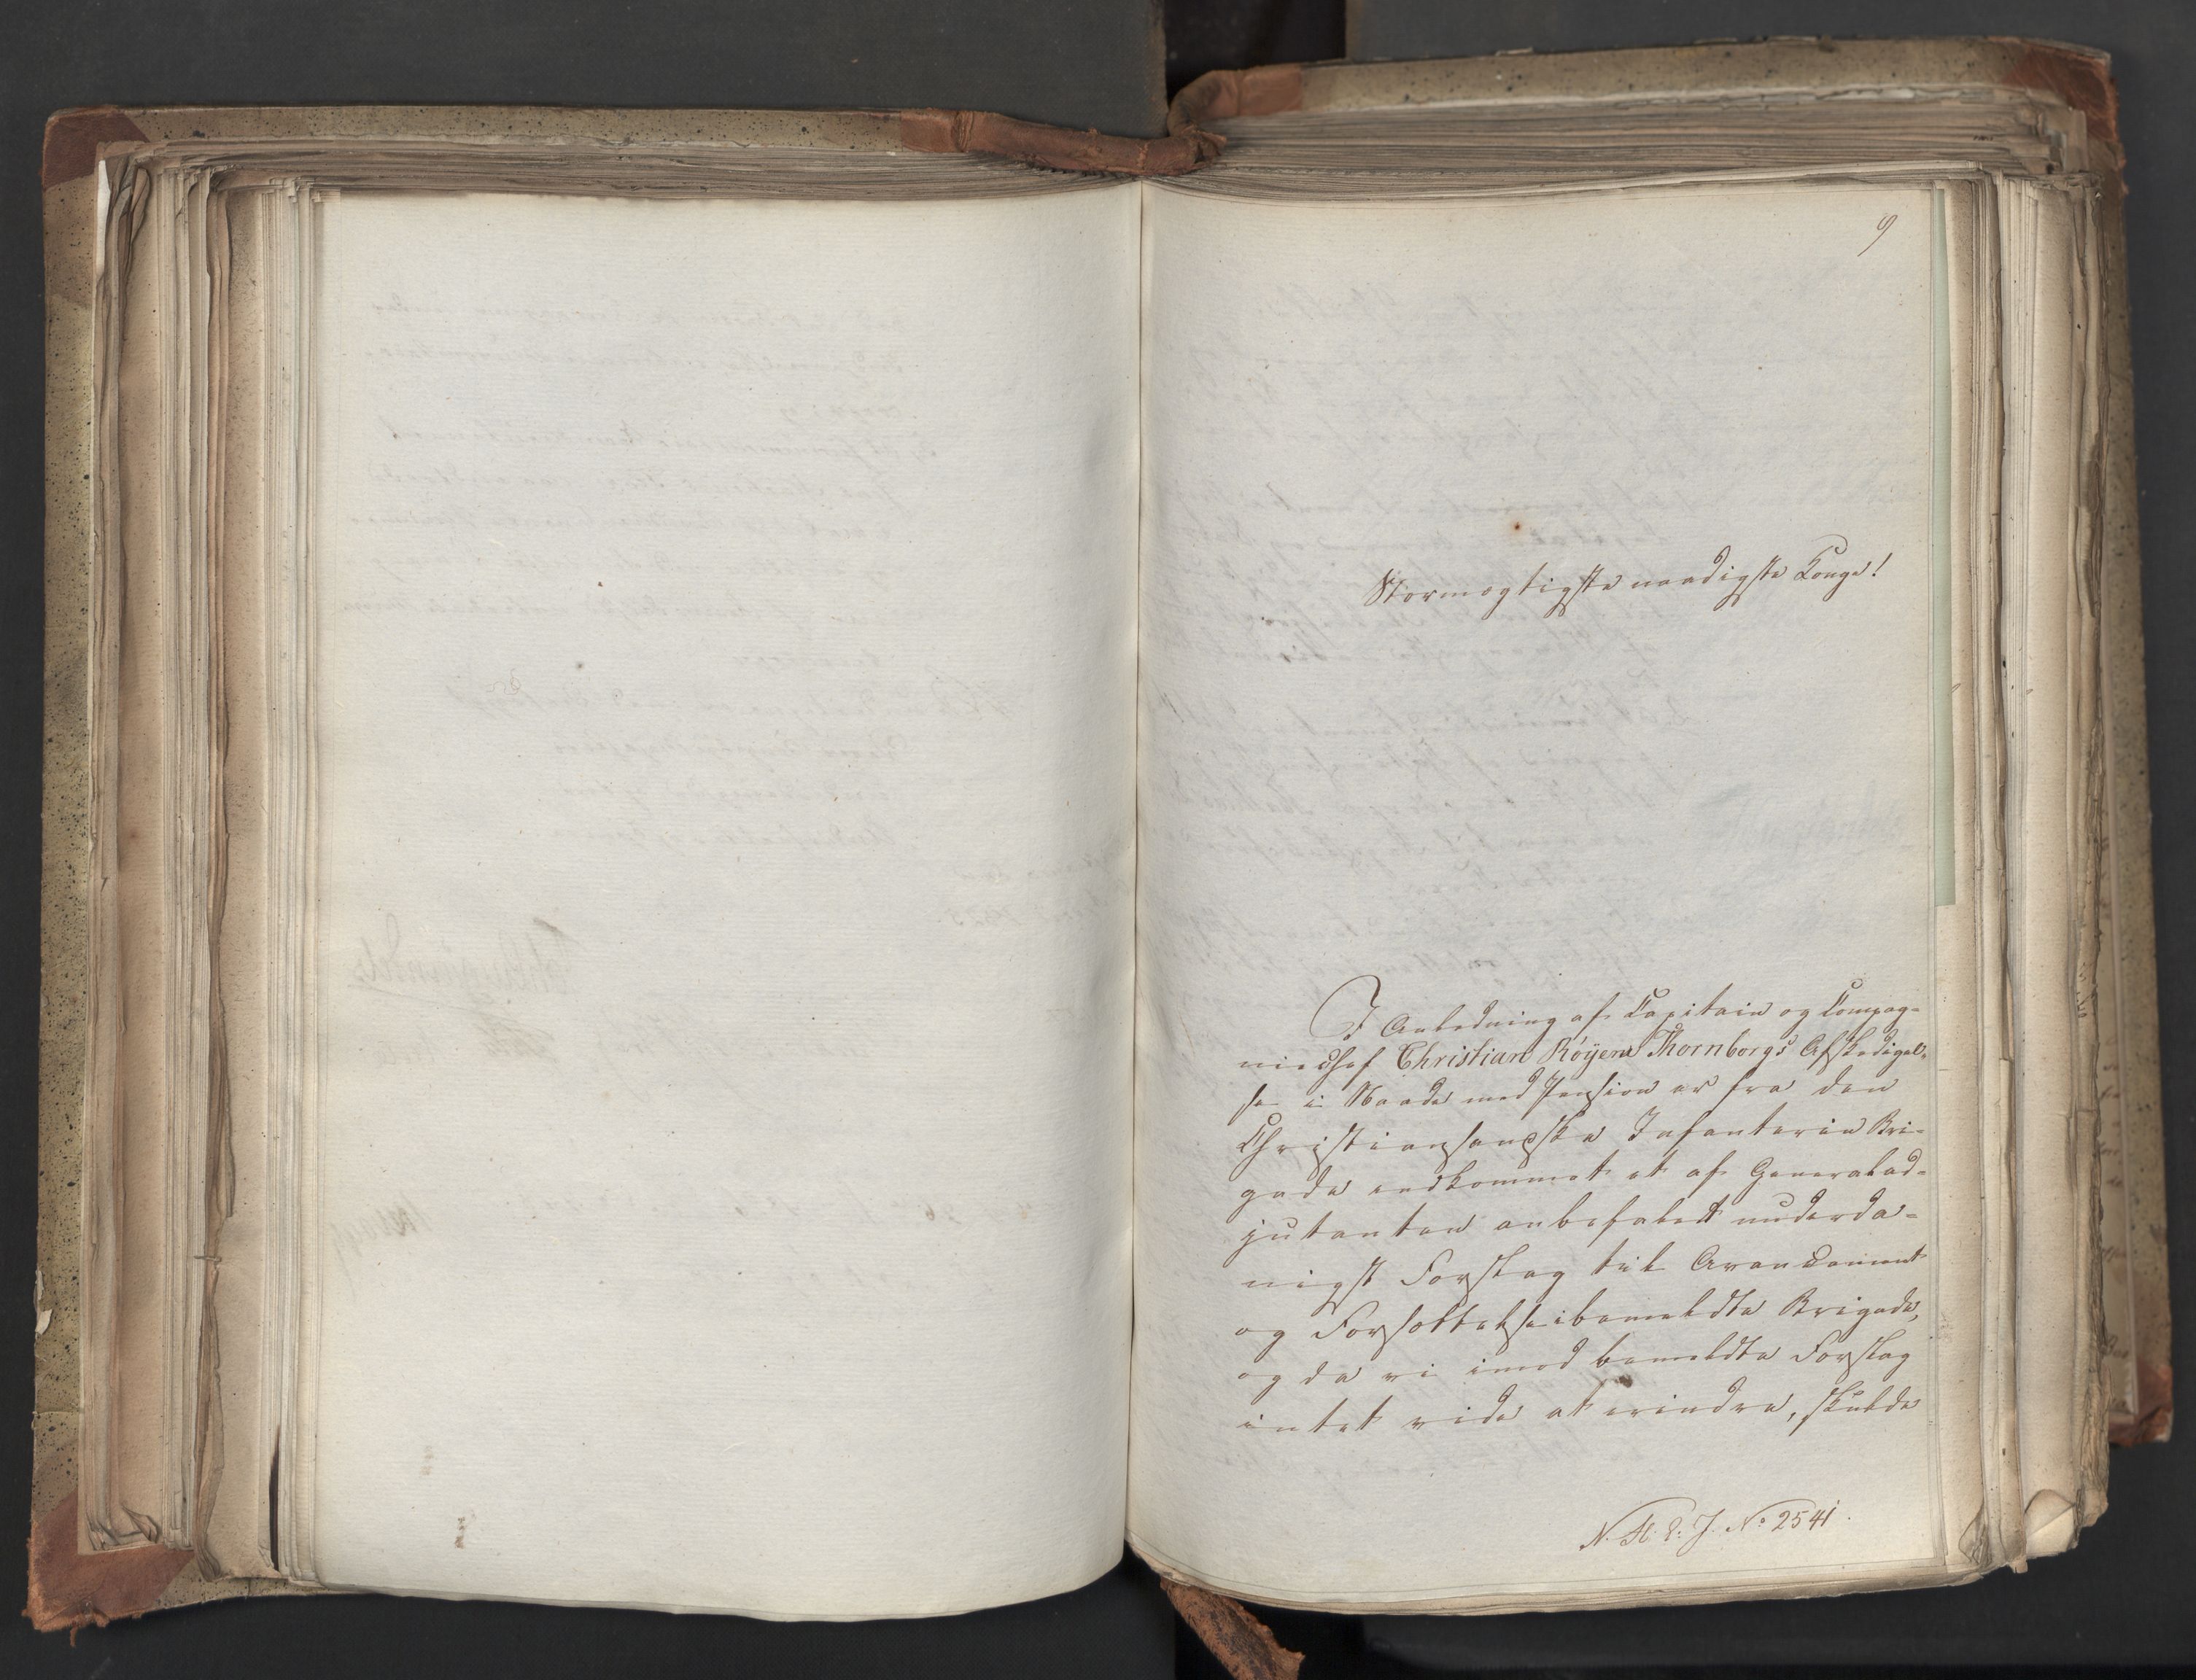 9
Stormægtigste naadigste Konge!
I Anledning af Capitain og Compag-
niechef Christian Röyem Thornborgs Afskedigel-
se i Naade med Pension er fra den
Christiansandske Infanterie Bri-
gade indkommet et af Generalad-
jutanten anbefalet underda-
nigst Forslag til Avancement
og Forsættelse i bemeldte Brigade,
og da vi imod bemeldte Forslag
intet vide at erindre, skulde
N. H. E. J. No 2541.